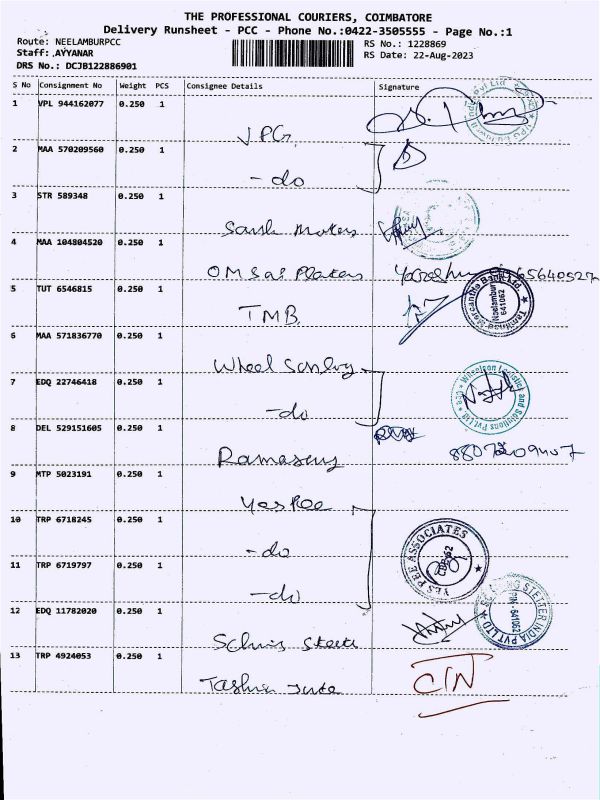 THE PROFESSIONAL COURIERS, COIMBATORE
Delivery Runsheet - PCC - Phone No.:0422-3505555 - Page No.:1
Route: NEELAMBURPCC
Staff: AYYANAR
DRS No.: DCJB122886901
RS No.: 1228869
RS Date: 22-Aug-2023
S No Consignment No Weight PCS Consignee Details Signature
1 VPL 944162077 0.250 1
JPG
2 MAA 570209560 0.250 1
- do
3 STR 589348 0.250 1
4 MAA 104804520 0.250 1
OM Sai
5 TUT 6546815 0.250 1
TMB
Tamilnad Mercantile Bank Ltd.
Neelambur
641062
6 MAA 571836770 0.250 1
Wheel
7 EDQ 22746418 0.250 1
- do
8 DEL 529151605 0.250 1
9 MTP 5023191 0.250 1
Yes Pee
10 TRP 6718245 0.250 1
- do
YES PEE ASSOCIATES
11 TRP 6719797 0.250 1
- do
12 EDQ 11782020 0.250 1
STETTER INDIA PVT LTD
13 TRP 4924053 0.250 1